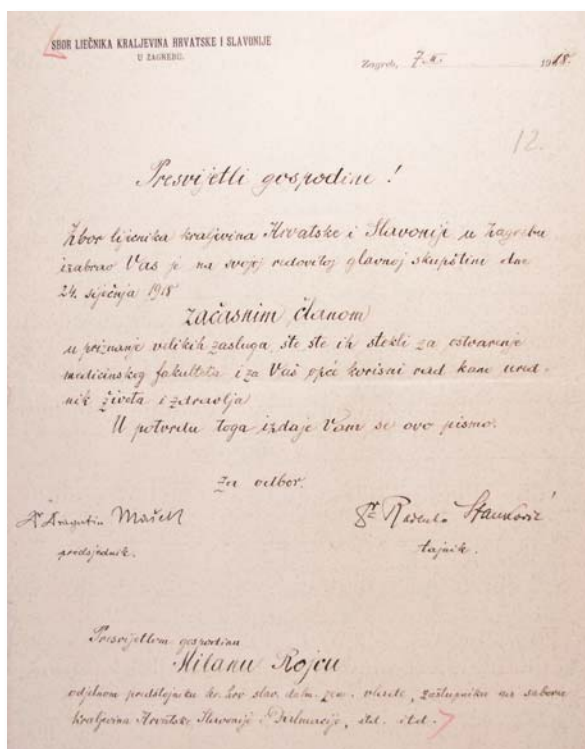 SBOR LIEČNIKA KRALJEVINA HRVATSKE I SLAVONIJE
U ZAGREBU.
Zagreb, 7.II. 1918.
12.
Presvijetli gospodine !
Zbor liječnika kraljevina Hrvatske i Slavonije u Zagrebu
izabrao Vas je na svojoj redovitoj glavnoj skupštini dne
24. siječnja 1918
začasnim članom
u priznanje velikih zasluga, što ste ih stekli za ostvarenje
medicinskog fakulteta i za Vaš opće korisni rad kano ured-
nik života i zdravlja
U potvrdu toga izdaje Vam se ovo pismo.
Za odbor.
Dr Dragutin Mašek
Dr Radenko Stanković
predsjednik.
tajnik.
Presvijetlom gospodinu
Milanu Rojcu
odjelnom predstojniku kr. hrv. slav. dalm. zem. vlade, zastupniku na saboru
kraljevina Hrvatske Slavonije i Dalmacije, itd. itd.